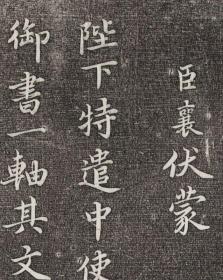 臣襄伏蒙
陛下特遣中使
御書一軸其文